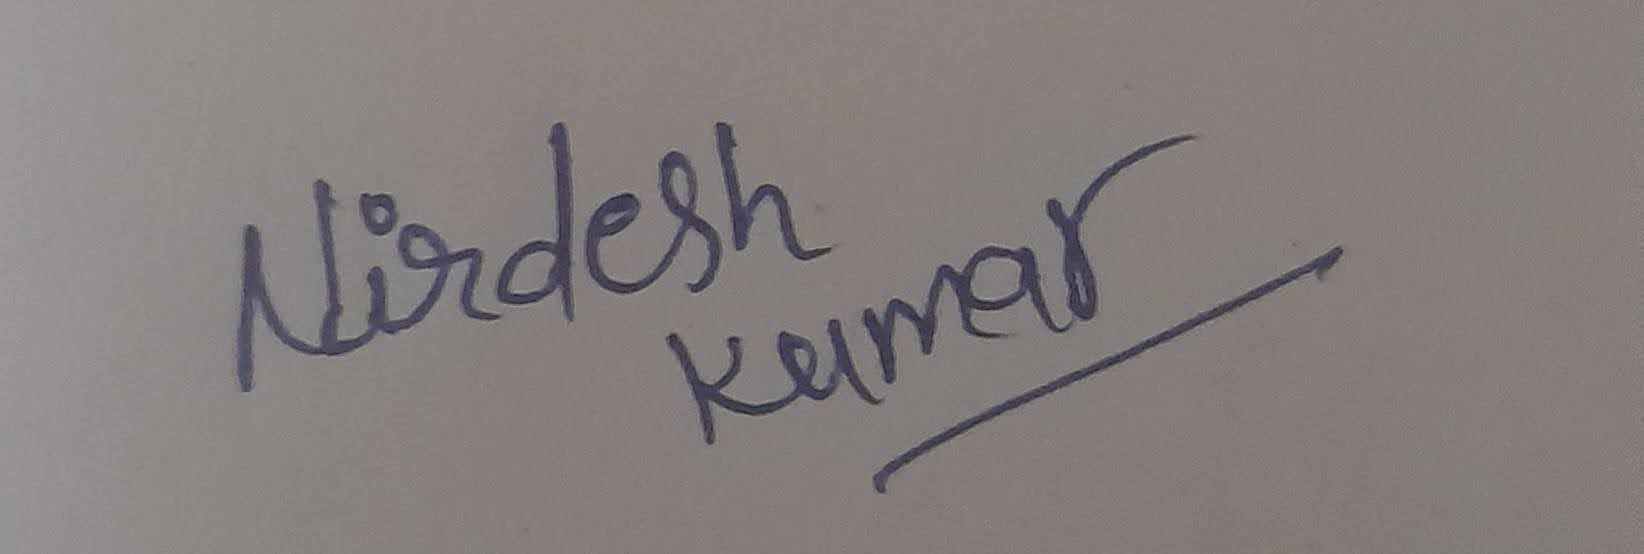 Nirdesh
Kumar